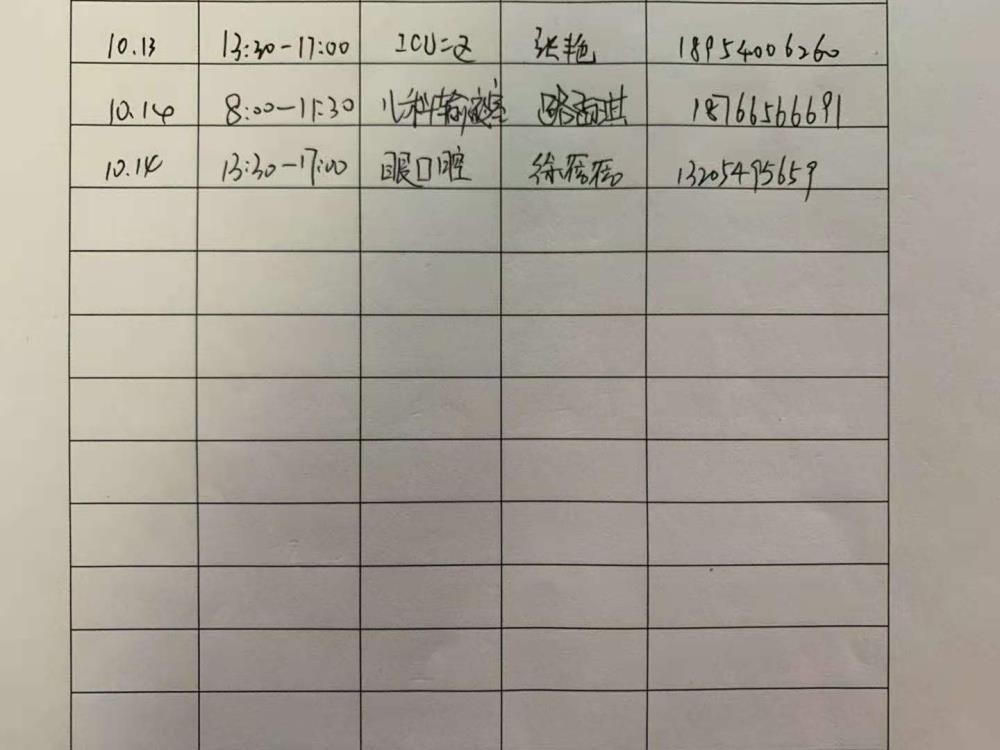 10.13 13:30-17:00 ICU二区 张艳 18954006260
10.14 8:00-11:30 儿科输液室 18766566691
10.14 13:30-17:00 眼口腔 徐蓓蓓 13205495659